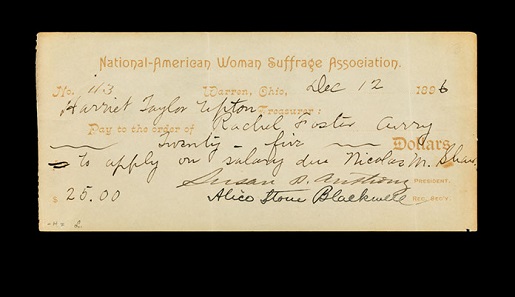 National-American Woman Suffrage Association.
No. 113 Warren, Ohio, Dec 12 1896
Harriet Taylor Upton Treasurer:
Pay to the order of Rachel Foster Avery
Twenty-five Dollars
to apply on salary due Nicolas M. Shaw
Susan B. Anthony PRESIDENT.
$ 25.00 Alice Stone Blackwell REC. SEC'Y.